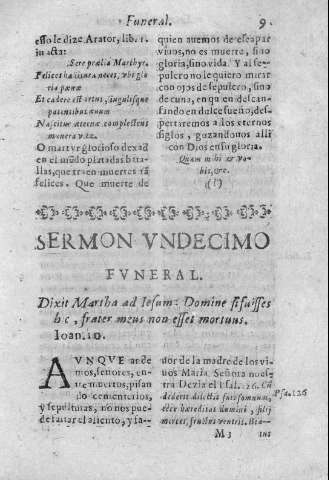 Funeral. 9.
esso le dize Arator, lib. 1.
in acta:
Sic prælia Marthyr.
Felices habitura neces, vbi glo
ria pœnæ
Et cadere est ortus, singulisque
patentibus annum
Nascitur æternæ complectens
munera vitæ.
O martyr glorioso dexad
en el mūdo plātadas bata
llas, que traen muertes tā
felices. Que muerte de
quien auemos de escapar
viuos, no es muerte, sino
gloria, sino vida. Y al se-
pulcro no le quiero mirar
con ojos de sepulcro, sino
de cuna, en quien descan-
sando en dulce sueño, des-
pertaremos a los eternos
siglos, gozandonos alli
con Dios en su gloria.
Quam mihi & vo-
bis, &c.
(!)
SERMON VNDECIMO
FVNERAL.
Dixit Martha ad Iesum: Domine si fuisses
hic, frater meus non esset mortuus.
Ioan. 10.
AVNQVE ande
mos, señores, en-
tre muertos, pisan
do cementerios,
y sepulturas, no nos pue-
de faltar el aliento, y fa-
dor de la madre de los vi-
uos Maria Señora nues
tra Dezia el Psal. 26. Cū
dederit dilectis suis somnum,
ecce hæreditas domini, filij
merces, fructus ventris. Bea-
Psa. 126
M 3 tus